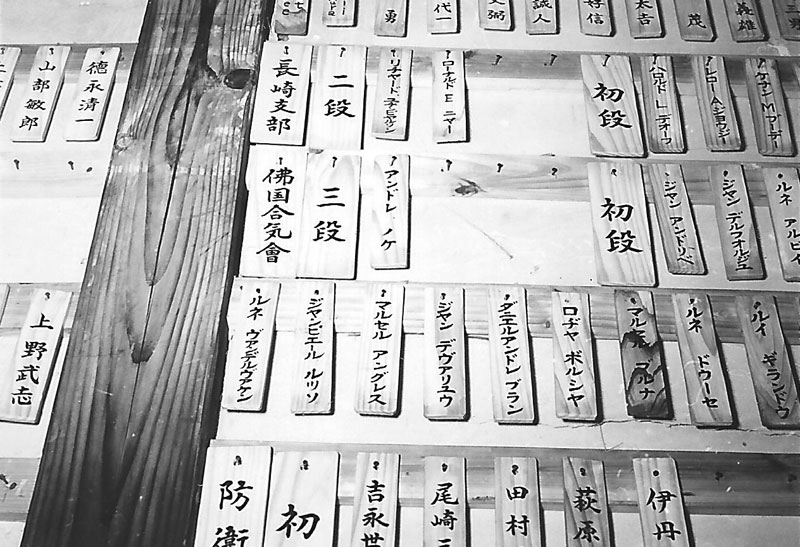 勇
代一
誠人
好信
太吉
茂
義雄
山部敏郎
徳永清一
長崎支部
二段
リチャード
ローナルド E ニヤー
初段
ハロルド L デオーフ
佛国合気會
三段
アンドレ ノケ
初段
ジャン アンドリベ
ジャン デルフォルジュ
ルネ アルビ
上野武志
ルネ ヴァンデルヴァケン
ジャンピエール ルソソ
マルセル アングレス
ジヤン デヴァリュウ
ダニエルアンドレ ブラン
ロヂャ ボルシヤ
マル ブルナ
ルネ ドゥーセ
ルイ ギランドウ
防衛
初
吉永世
尾崎三
田村
荻原
伊丹